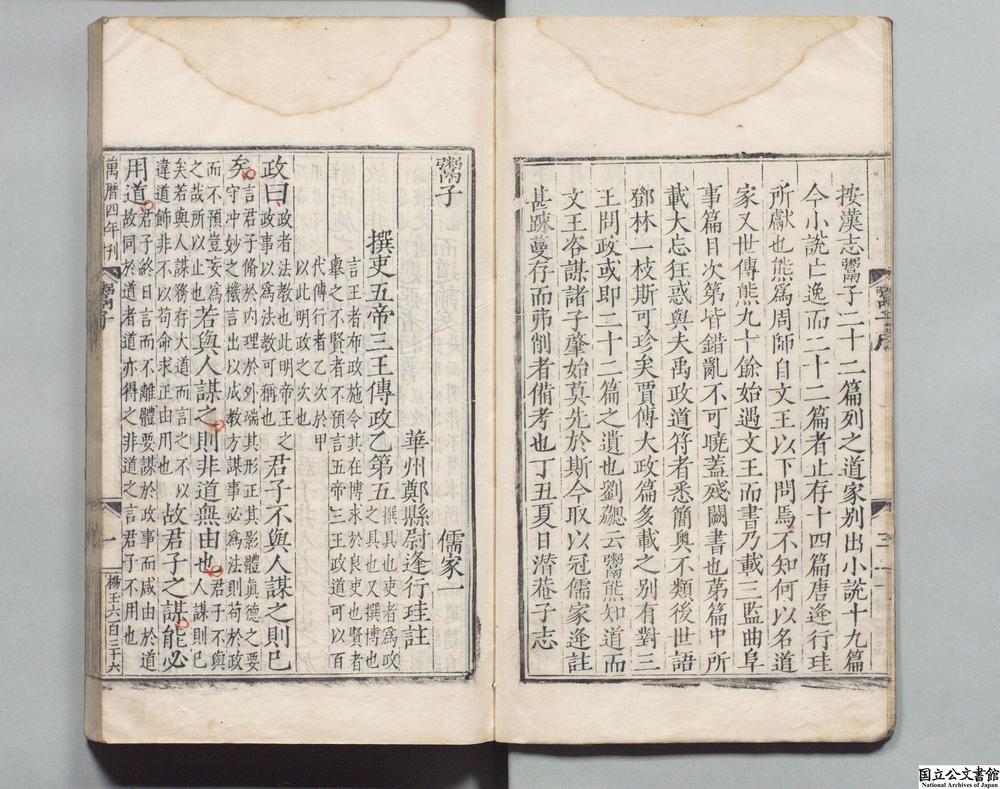 按漢志鬻子二十二篇列之道家别出小說十九篇
今小說亡逸而二十二篇者止存十四篇唐逄行珪
所獻也熊爲周師自文王以下問焉不知何以名道
家又世傳熊九十餘始遇文王而書乃載三監曲阜
事篇目次第皆錯亂不可曉蓋殘闕書也第篇中所
載大忘狂惑與夫禹政道符者悉簡奧不類後世語
鄧林一枝斯可珍矣賈傅大政篇多載之别有對三
王問政或即二十二篇之遺也劉勰云鬻熊知道而
文王咨謀諸子肇始莫先於斯今取以冠儒家逄註
甚踈蔓存而弗削者備考也丁丑夏日潛菴子志
鬻子序
三
鬻子
儒家一
華州鄭縣尉逄行珪註
撰吏五帝三王傳政乙第五
撰具也吏者爲政
之具也又撰博也
言王者布政施令其在博求於良吏也賢者
舉之不賢者不預言五帝三王政道可以百
代傳行者乙次於甲
以此明政之次也
政曰
政者法教也此明帝王之
政事以爲法教可稱也
君子不與人謀之則已
矣
言君子脩於内理於外端其形正其影體眞德之要
守冲妙之機言出以成教方謀事必爲法則苟於政
而不預豈妄爲
之哉所以止也
若與人謀之則非道無由也
君子不與
人謀則已
矣若與人謀務存大道而言之不以
違道飾非不以苟命求正由用也
故君子之謀能必
用道
君子終日言而不離體要謀於政事而咸由於道
故同於道者道亦得之非道之言君子不用也
萬曆四年刊
鬻子
一
楊玉六百三十六
国立公文書館
National Archives of Japan